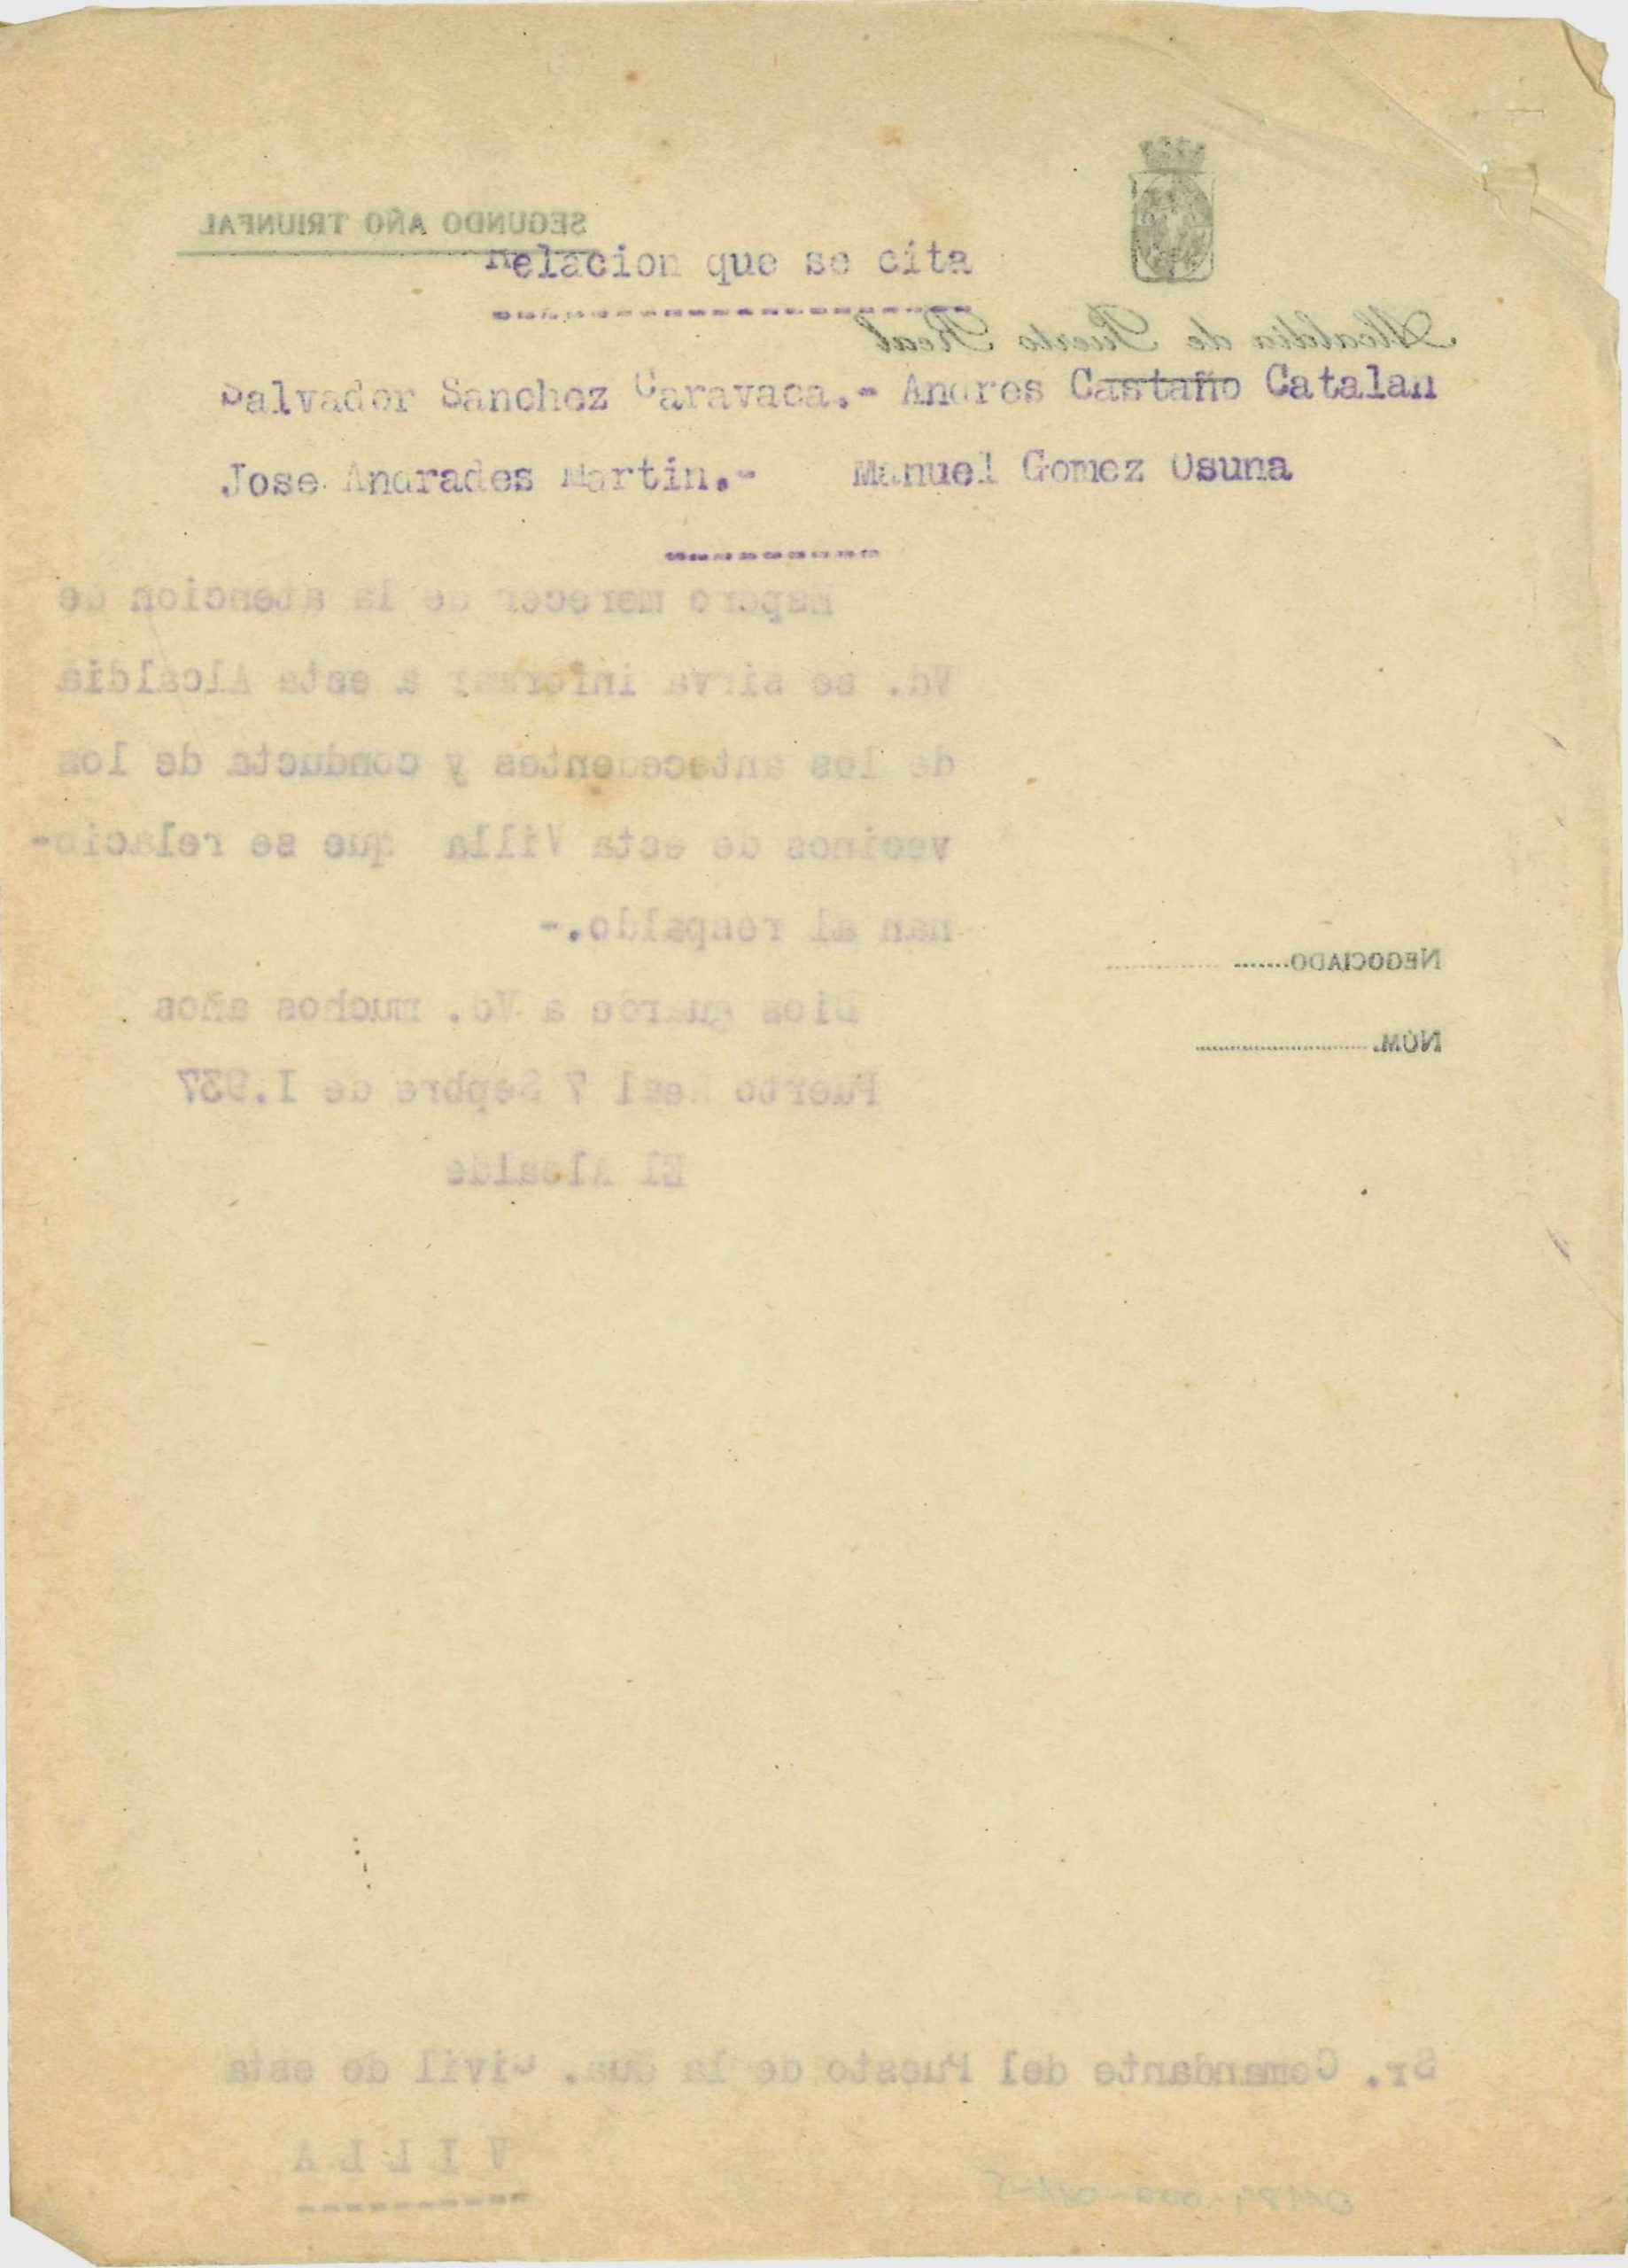 Relacion que se cita
Salvador Sanchez Caravaca.- Andres Castaño Catalan
Jose Andrades Martin.- Manuel Gomez Osuna
SEGUNDO AÑO TRIUNFAL
Alcaldia de Puerto Real
Espero merecer de la atencion de
Vd. se sirva informar a esta Alcaldia
de los antecedentes y conducta de los
vecinos de esta Villa que se relacio-
nan al respaldo.-
NEGOCIADO
Dios guarde a Vd. muchos años
NÚM.
Puerto Real 7 Sepbre de I.937
El Alcalde
Sr. Comandante del Puesto de la Gua. Civil de esta
VILLA